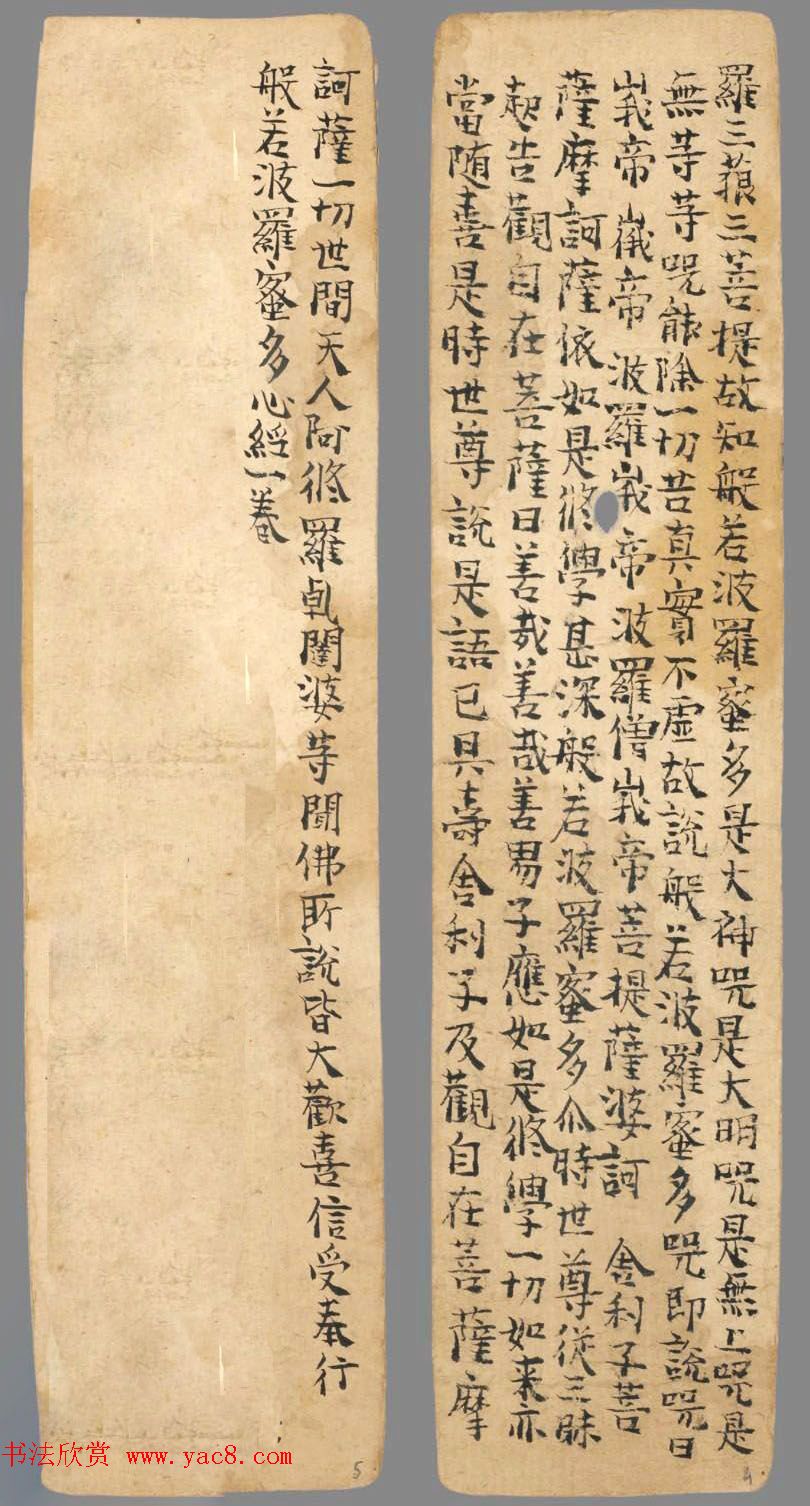 羅三藐三菩提故知般若波羅蜜多是大神咒是大明咒是無上咒是
無等等咒能除一切苦真實不虛故說般若波羅蜜多咒即說咒曰
峩帝峩帝波羅峩帝波羅僧峩帝菩提薩婆訶 舍利子菩
薩摩訶薩依如是修學甚深般若波羅蜜多尒時世尊從三昧
起告觀自在菩薩曰善哉善哉善男子應如是修學一切如來亦
當随喜是時世尊說是語已具壽舍利子及觀自在菩薩摩
4
訶薩一切世間天人阿修羅乹闥婆等聞佛所說皆大歡喜信受奉行
般若波羅蜜多心經一卷
5
书法欣赏 www.yac8.com